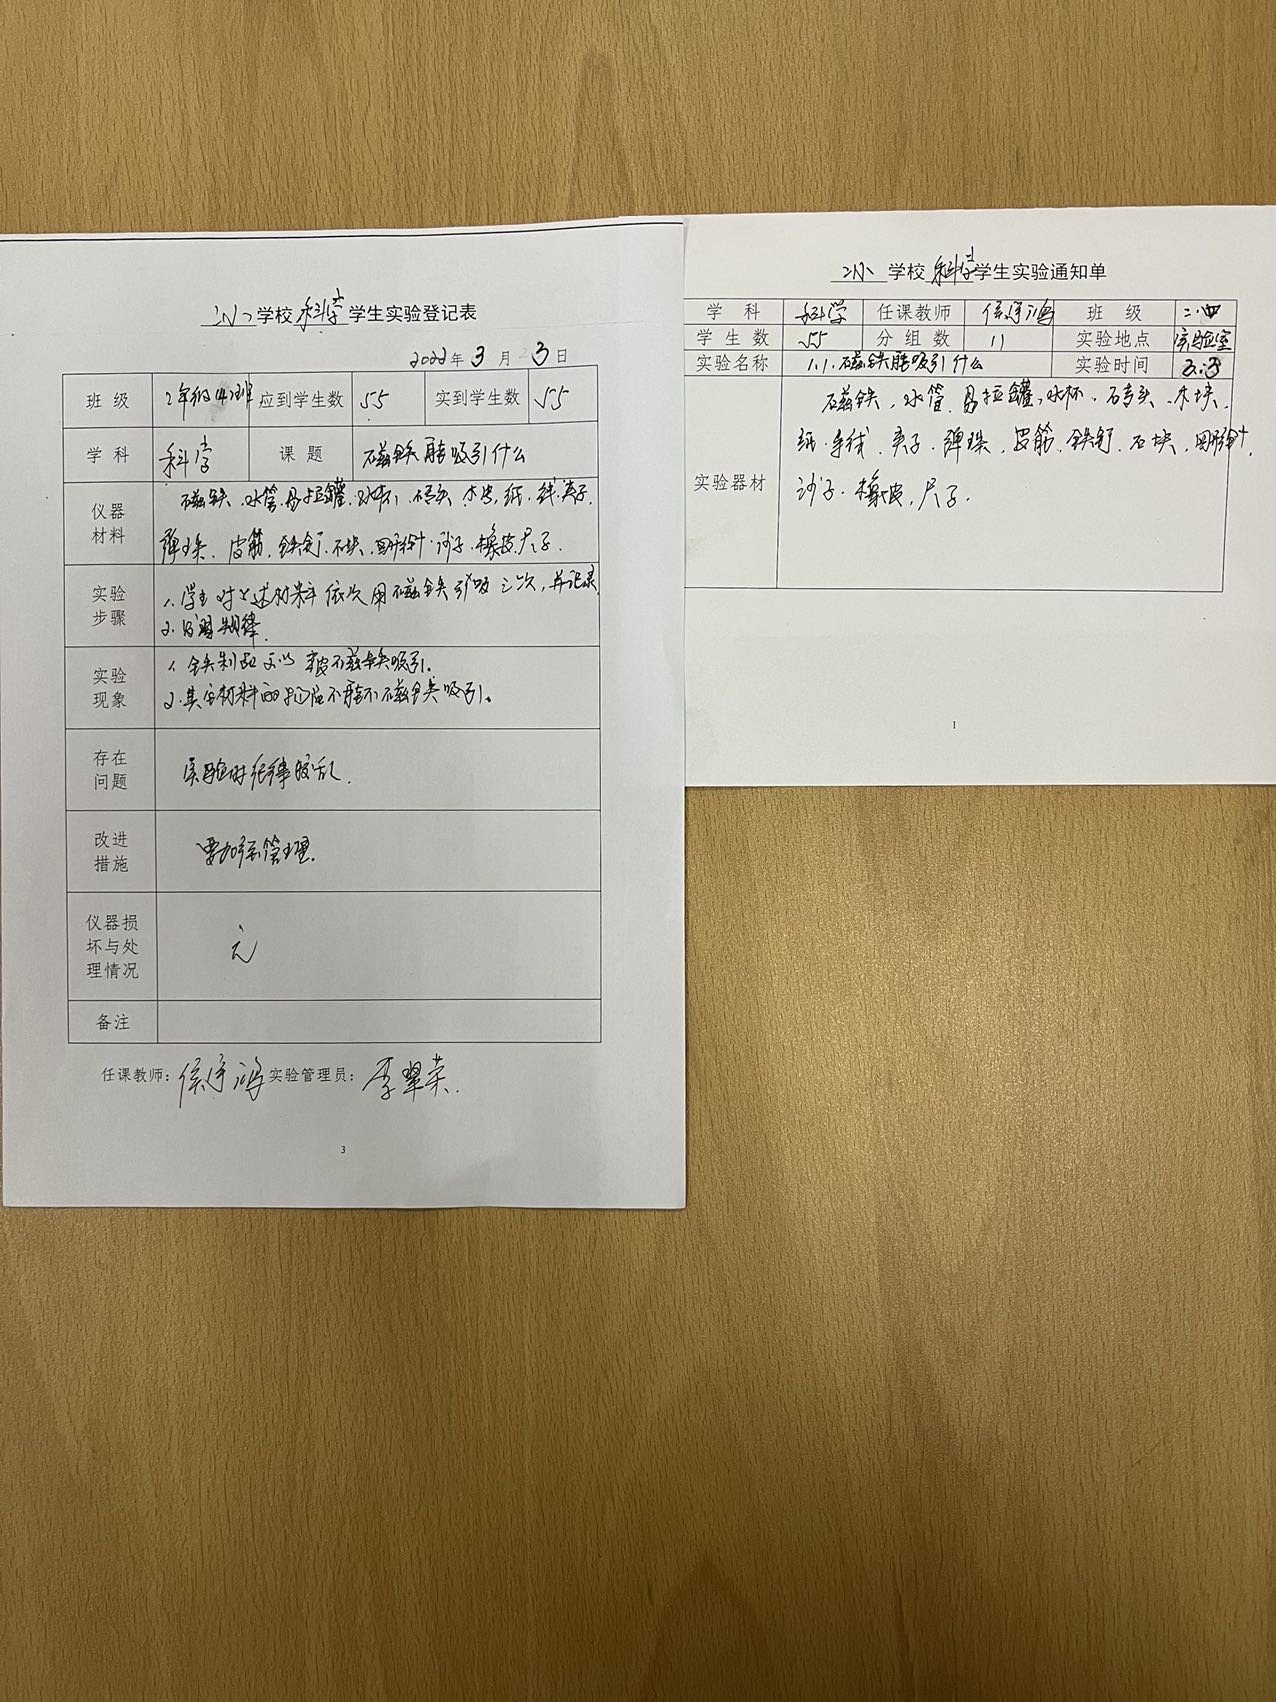 学校科学学生实验登记表
2022年3月3日
班级 2年级(4)班 应到学生数 55 实到学生数 55
学科 科学 课题 磁铁能吸引什么
仪器材料 磁铁、水管、易拉罐、水杯、砖头、木块、纸、线、夹子、
弹珠、皮筋、铁钉、石块、回形针、沙子、橡皮、尺子.
实验步骤 1.学生对上述材料依次用磁铁引吸三次,并记录
2.归纳规律.
实验现象 1.铁制品可以被磁铁吸引。
2.其它材料的物体不能被磁铁吸引。
存在问题 实验时纪律较乱.
改进措施 要加强管理.
仪器损坏与处理情况 无
备注
任课教师: 实验管理员:李翠荣
3
学校科学学生实验通知单
学科 科学 任课教师 班级 二.四
学生数 55 分组数 11 实验地点 实验室
实验名称 1.1.磁铁能吸引什么 实验时间 3.3
实验器材 磁铁、水管、易拉罐、水杯、砖头、木块、
纸、手线、夹子、弹珠、皮筋、铁钉、石块、回形针、
沙子、橡皮、尺子.
1